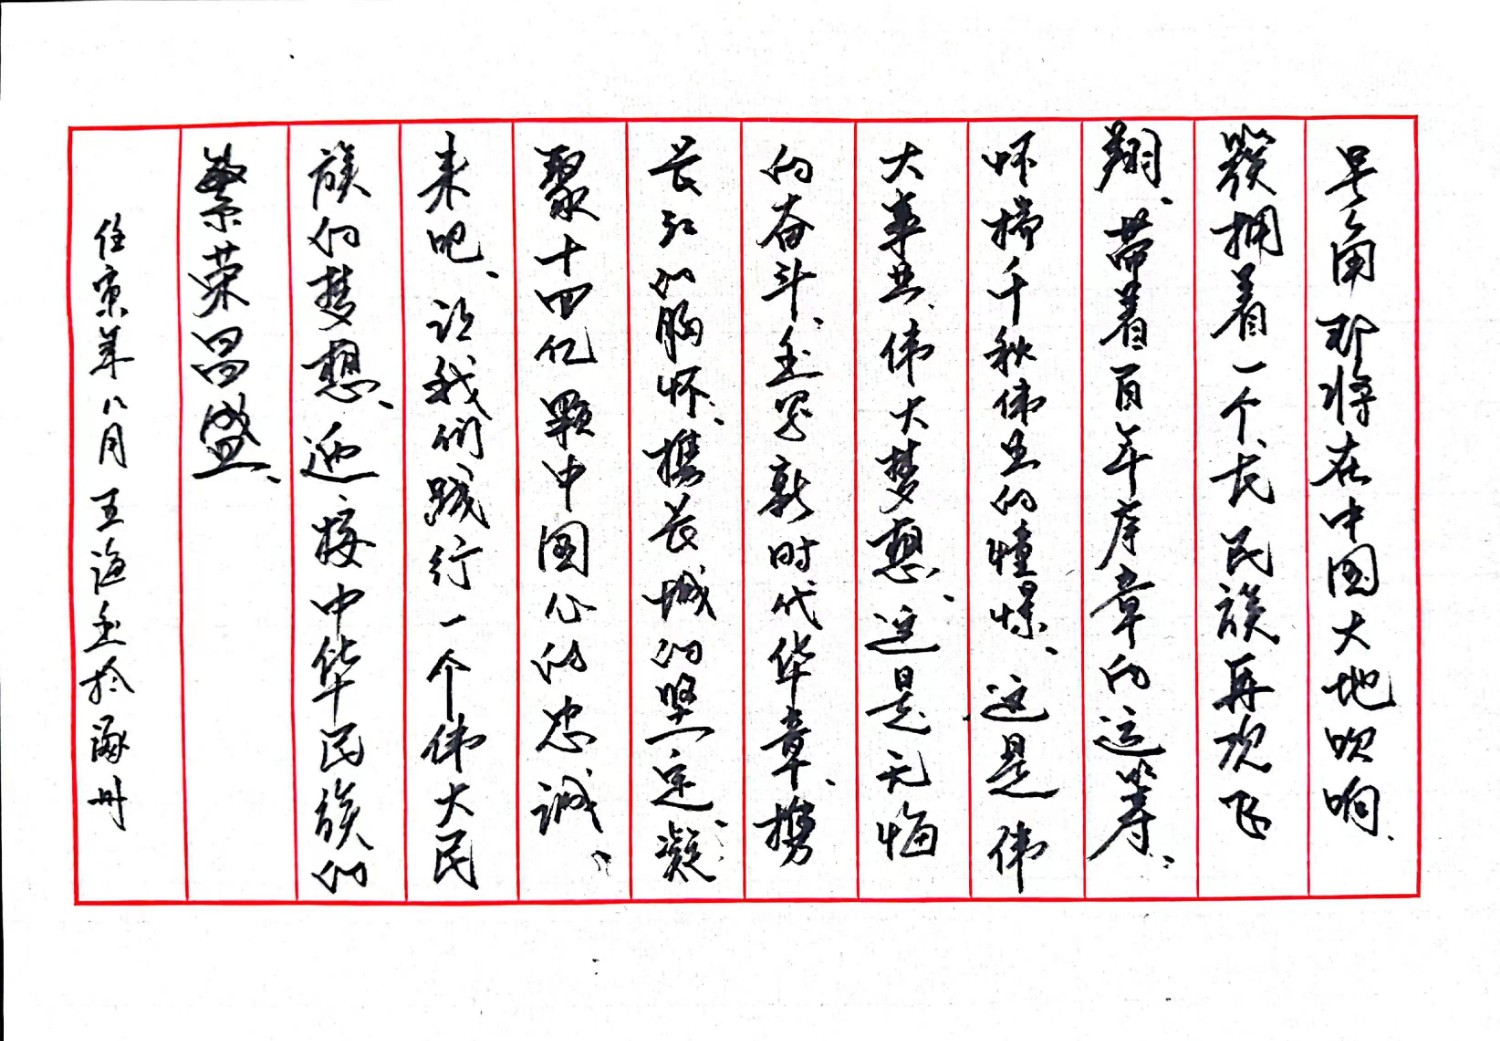 号角即将在中国大地吹响、
簇拥着一个民族再次飞
翔、带着百年序章的运筹、
怀揣千秋伟业的憧憬、这是伟
大事业、伟大梦想、这是无悔
的奋斗、书写新时代华章、携
长江的胸怀、携长城的坚定、凝
聚十四亿颗中国心的忠诚、
来吧、让我们践行一个伟大民
族的梦想、迎接中华民族的
繁荣昌盛、
年八月王海书於涿州